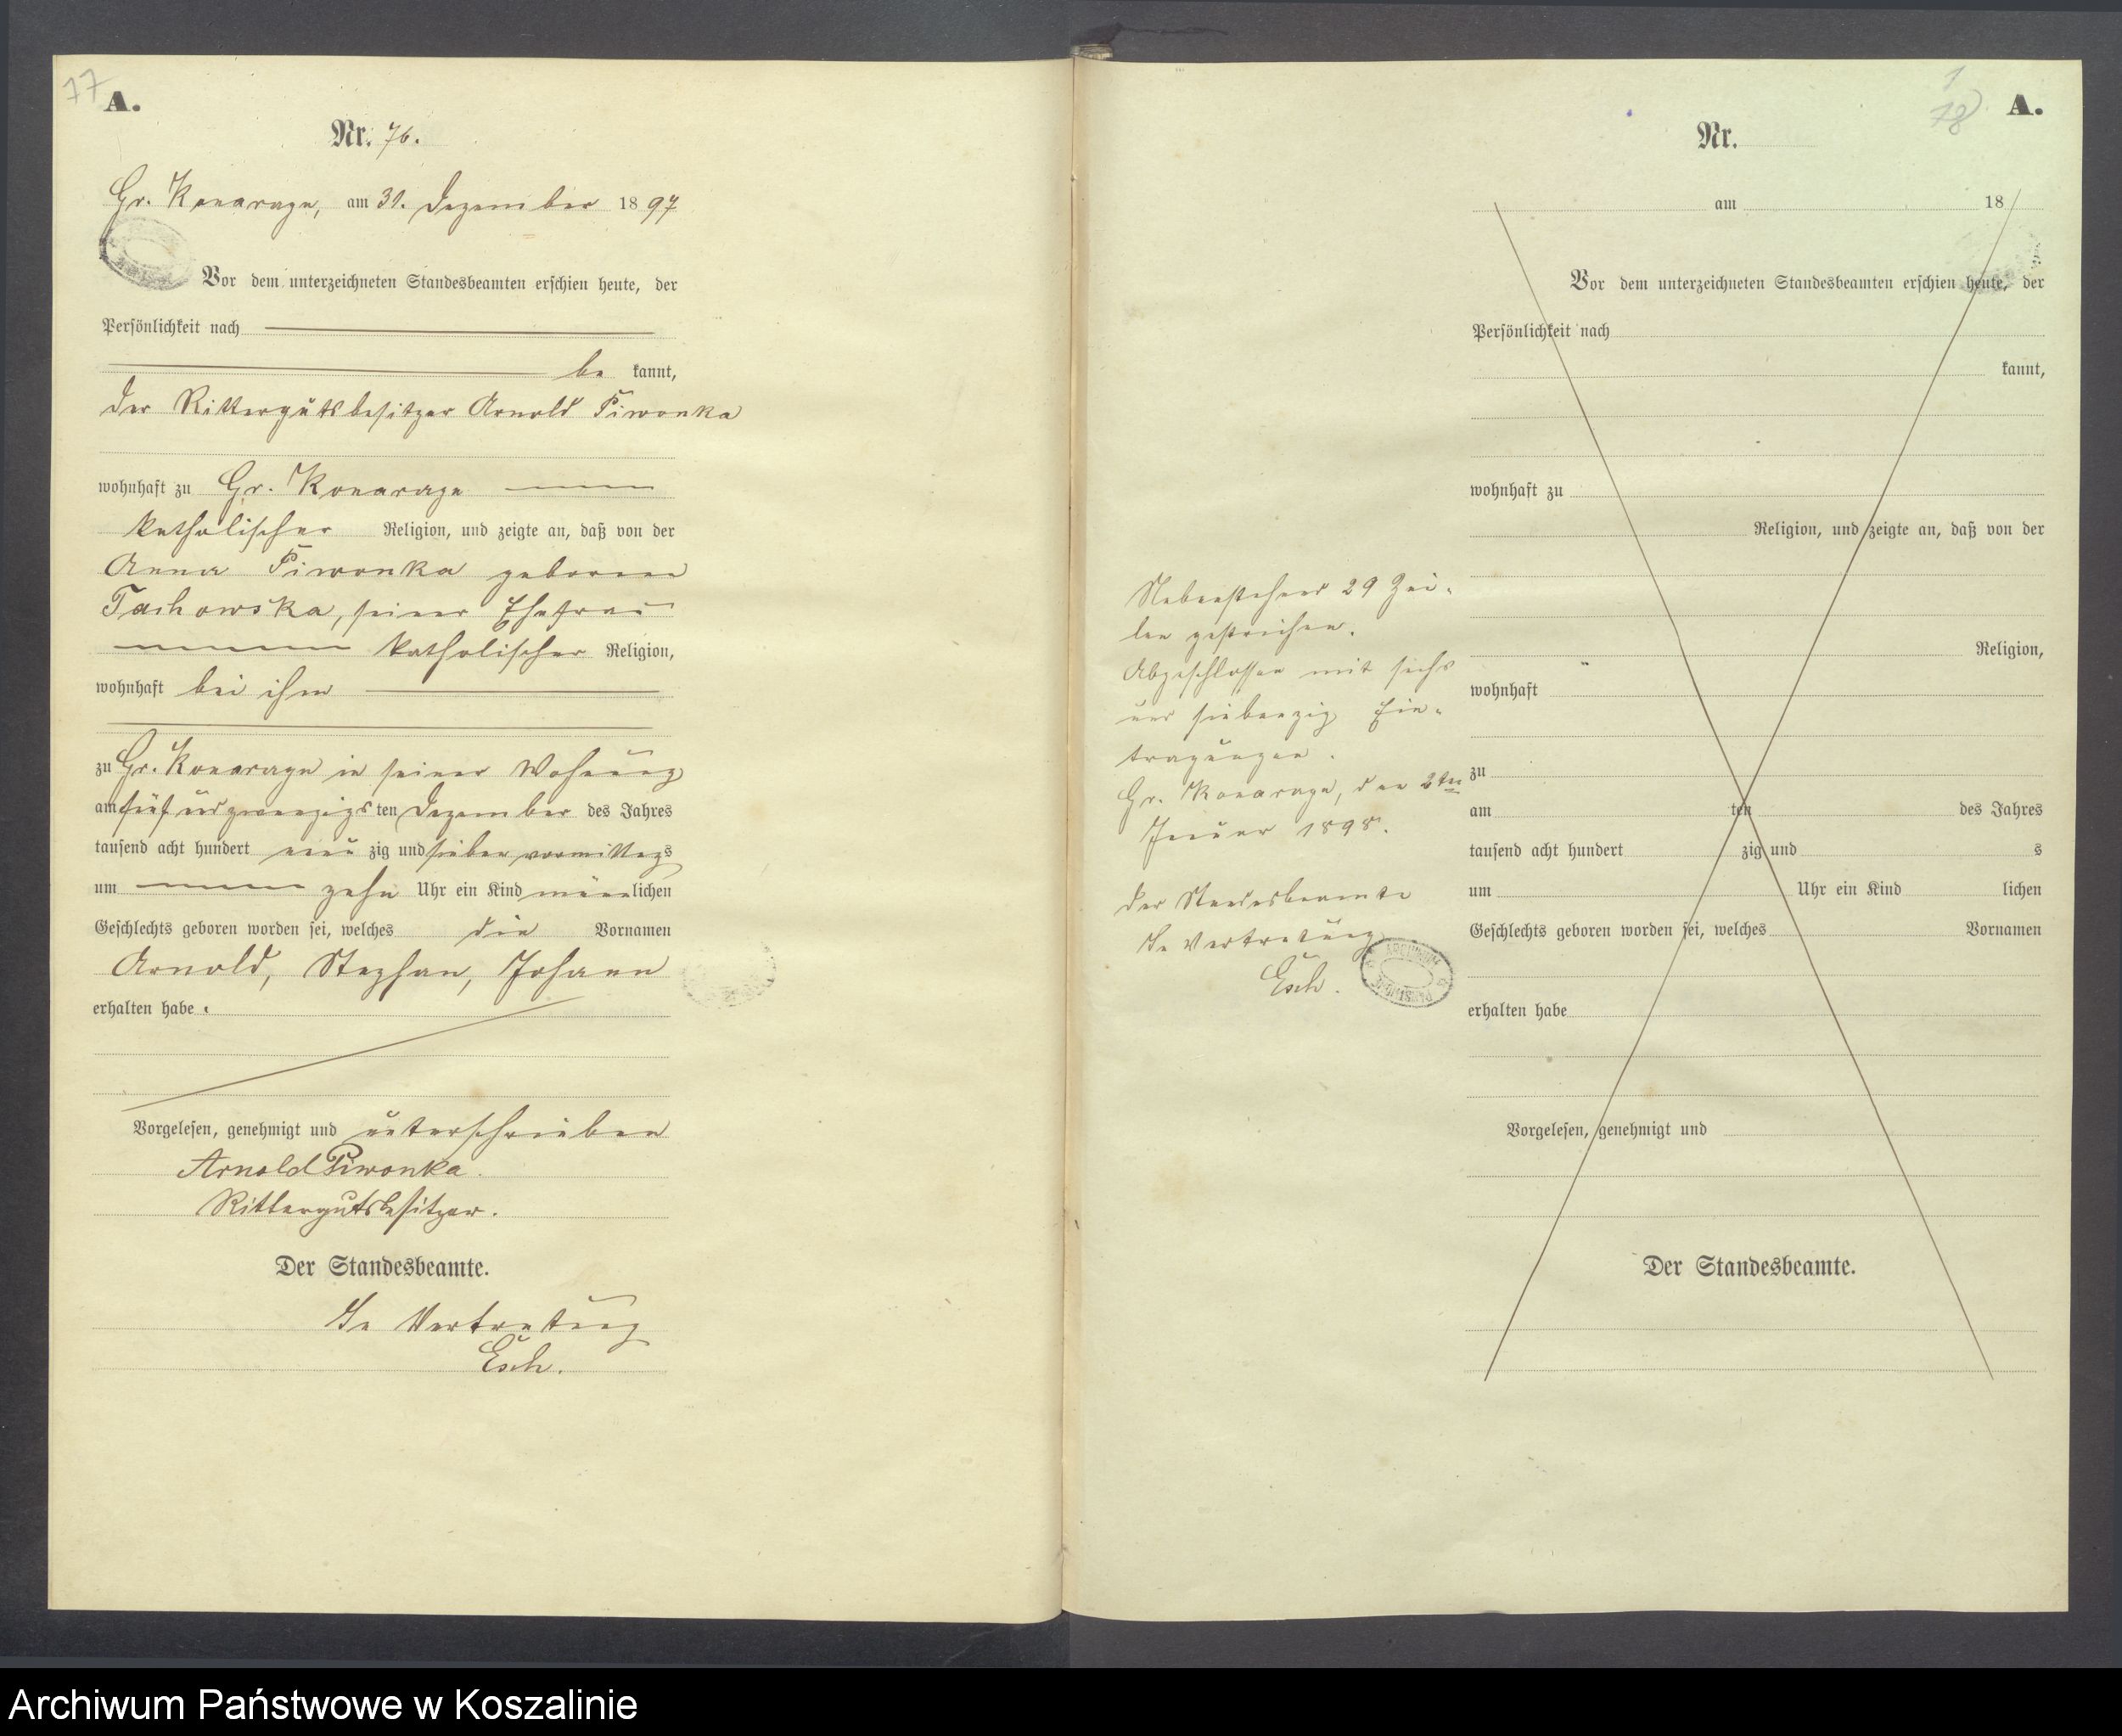 77
A.
Nr. 76.
Gr. Konarczyn, am 31. Dezember 1897
Vor dem unterzeichneten Standesbeamten erschien heute, der
Persönlichkeit nach
be kannt,
der Rittergutsbesitzer Arnold Piwonka
wohnhaft zu Gr. Konarczyn
katholischer Religion, und zeigte an, daß von der
Anna Piwonka geborene
seiner Ehefrau
katholischer Religion,
wohnhaft bei ihm
zu Gr. Konarczyn in seiner Wohnung
am fünf und zwanzigsten Dezember des Jahres
tausend acht hundert neun zig und sieben vormittags
um zehn Uhr ein Kind männlichen
Geschlechts geboren worden sei, welches die Vornamen
Arnold, Stephan, Johann
erhalten habe.
Vorgelesen, genehmigt und unterschrieben
Arnold Piwonka.
Rittergutsbesitzer.
Der Standesbeamte.
In Vertretung
Esch.
Nebenstehend 29 Zei-
len gestrichen.
Abgeschlossen mit sechs
und siebenzig Ein-
tragungen.
Gr. Konarczyn, den 2ten
Januar 1898.
Der Standesbeamte
In Vertretung
Esch.
78
A.
Nr.
am 18
Vor dem unterzeichneten Standesbeamten erschien heute, der
Persönlichkeit nach
kannt,
wohnhaft zu
Religion, und zeigte an, daß von der
Religion,
wohnhaft
zu
am ten des Jahres
tausend acht hundert zig und s
um Uhr ein Kind lichen
Geschlechts geboren worden sei, welches Vornamen
erhalten habe
Vorgelesen, genehmigt und
Der Standesbeamte.
Archiwum Państwowe w Koszalinie